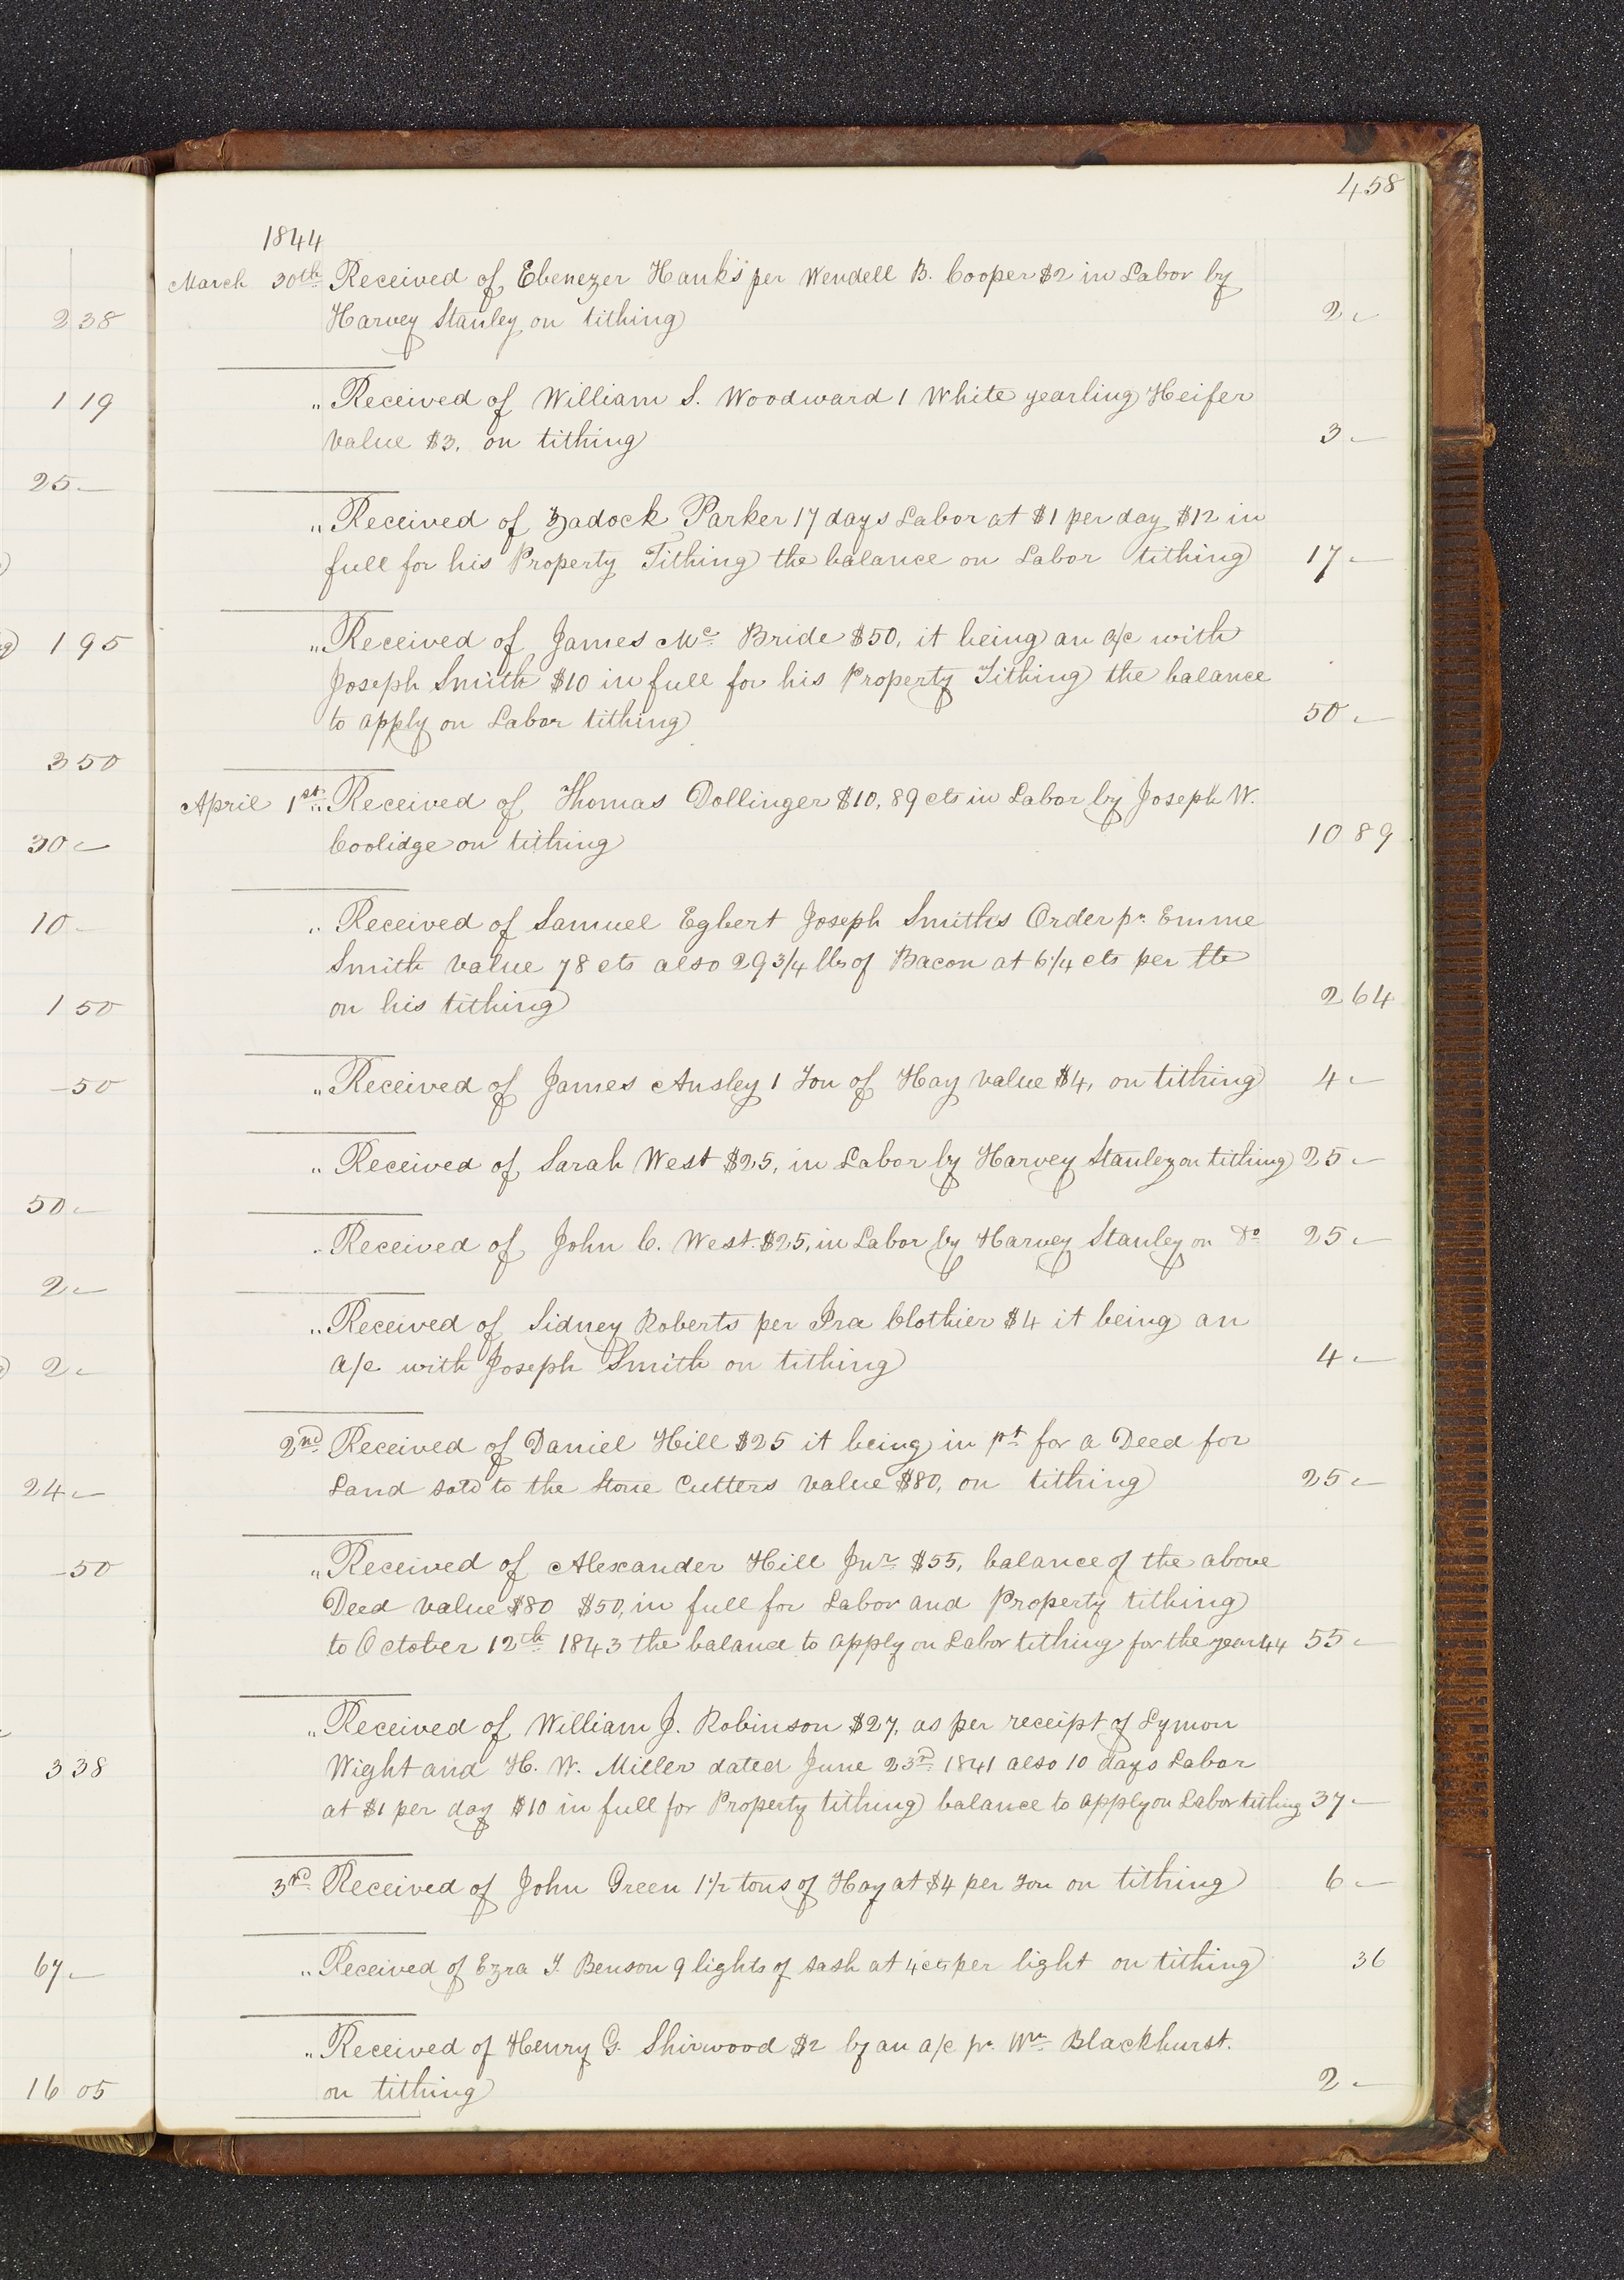 458
1844
March 30th Received of Ebenezer Hanks per Wendell B. Cooper $2 in Labor by
Harvey Stanley on tithing 2 -
" Received of William S. Woodward 1 White yearling Heifer
value $3, on tithing 3 -
" Received of Zadock Parker 17 days Labor at $1 per day $12 in
full for his Property Tithing the balance on Labor tithing 17 -
" Received of James Mc Bride $50, it being an a/c with
Joseph Smith $10 in full for his Property Tithing the balance
to apply on Labor tithing 50 -
April 1st " Received of Thomas Dollinger $10,89 cts in Labor by Joseph W.
Coolidge on tithing 10 89
" Received of Samuel Egbert Joseph Smiths Order pr. Emme
Smith value 78 cts also 29 3/4 lbs of Bacon at 6 1/4 cts per lb
on his tithing 2 64
" Received of James Ansley 1 Ton of Hay value $4, on tithing 4 -
" Received of Sarah West $25, in Labor by Harvey Stanley on tithing 25 -
" Received of John C. West $25, in Labor by Harvey Stanley on Do 25 -
" Received of Sidney Roberts per Ira Clothier $4 it being an
a/c with Joseph Smith on tithing 4 -
2nd Received of Daniel Hill $25 it being in pt for a Deed for
Land sold to the Stone Cutters value $80, on tithing 25 -
" Received of Alexander Hill Jnr $55, balance of the above
Deed value $80 $50, in full for Labor and Property tithing
to October 12th 1843 the balance to apply on Labor tithing for the year 44 55 -
" Received of William J. Robinson $27, as per receipt of Lymon
Wight and H. W. Miller dated June 23rd 1841 also 10 days Labor
at $1 per day $10 in full for Property tithing balance to apply on Labor tithing 37 -
3rd Received of John Green 1 1/2 tons of Hay at $4 per Ton on tithing 6 -
" Received of Ezra T. Benson 9 lights of sash at 4 cts per light on tithing 36
" Received of Henry G. Shirwood $2 by an a/c pr. Wm Blackhurst.
on tithing 2 -
2 38
1 19
25 -
1 95
3 50
30 -
10 -
1 50
- 50
50 -
2 -
2 -
24 -
- 50
3 38
67 -
16 05